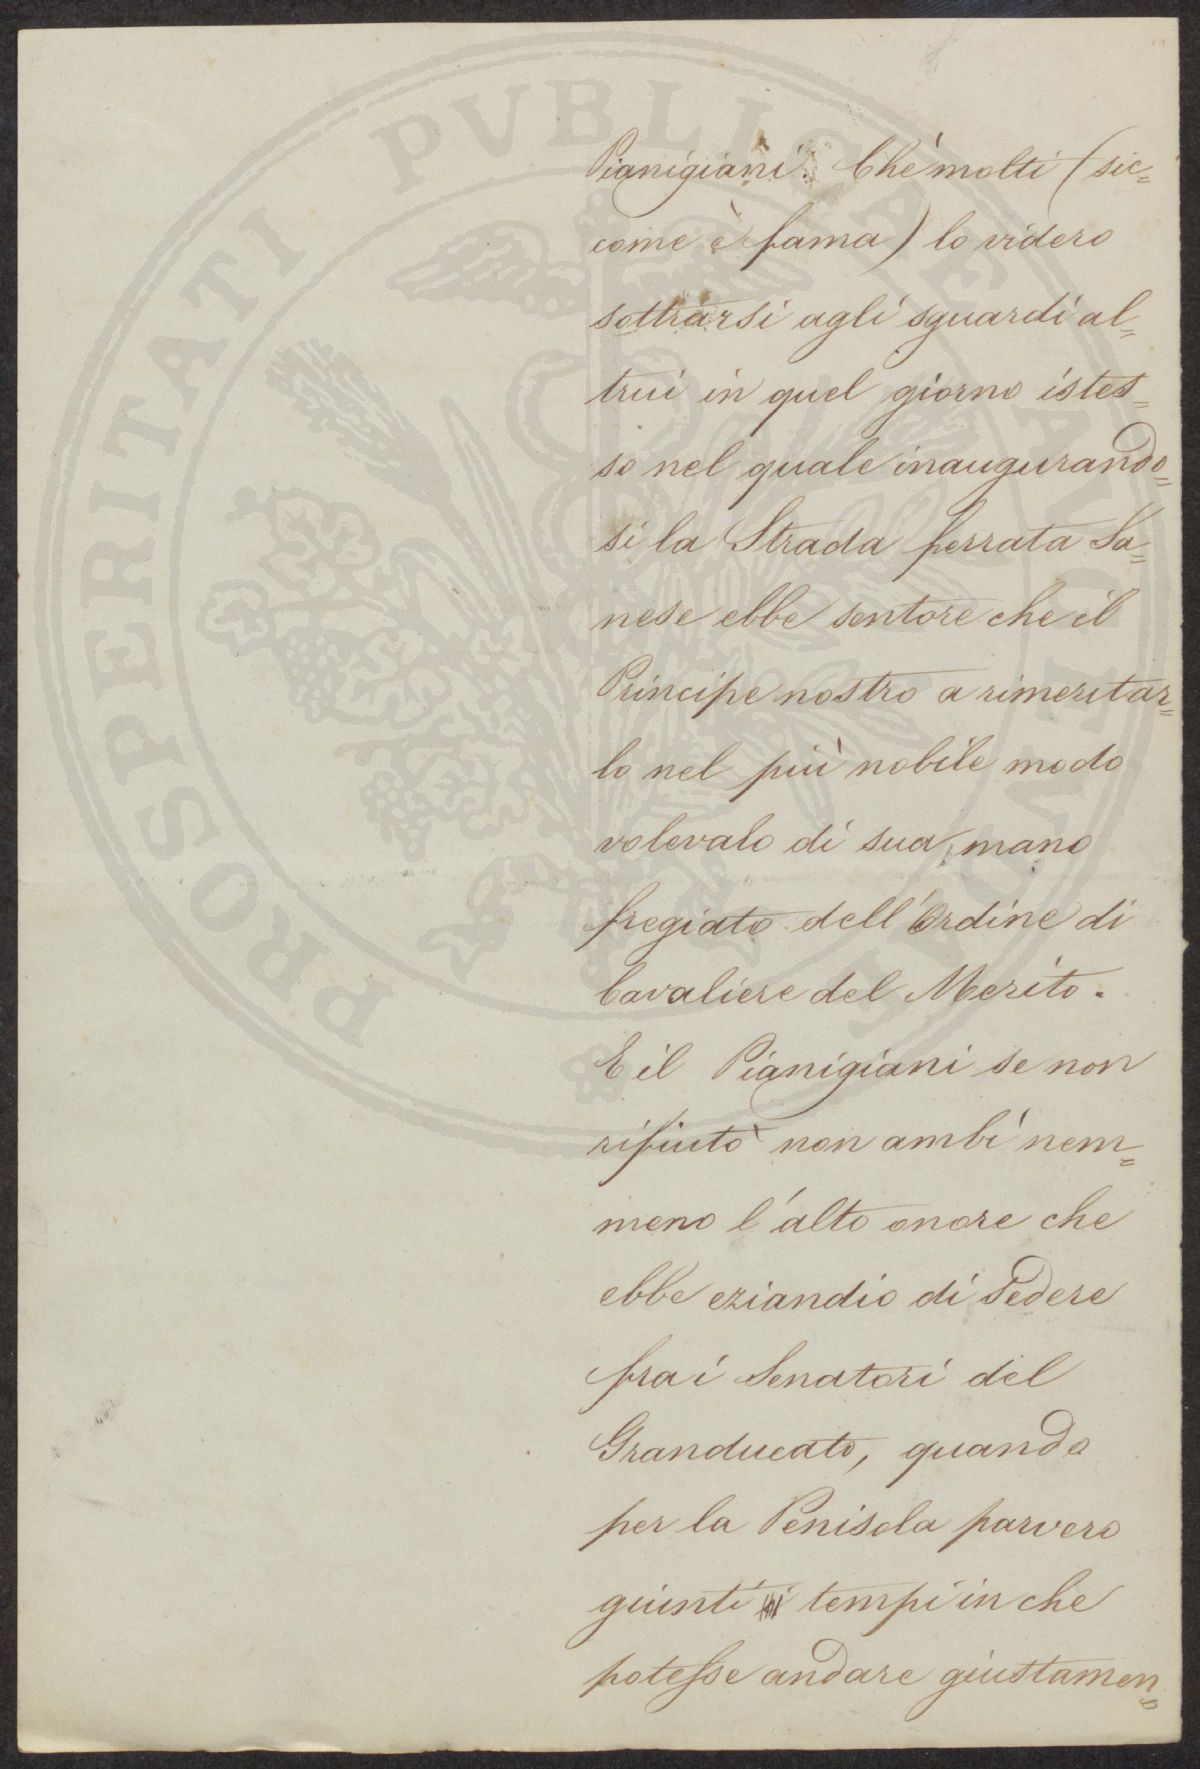 PROSPERITATI PVBLICAE AVGENDAE
Pianigiani. Chè molti (sic=
come è fama) lo videro
sottrarsi agli sguardi al=
trui in quel giorno istes=
so nel quale inaugurando=
si la Strada ferrata Sa=
nese ebbe sentore che il
Principe nostro a rimeritar=
lo nel più nobile modo
volevalo di sua mano
fregiato dell'Ordine di
Cavaliere del Merito.
E il Pianigiani se non
rifiutò non ambì nem=
meno l'alto onore che
ebbe eziandio di sedere
fra i Senatori del
Granducato, quando
per la Penisola parvero
giunti i tempi in che
potesse andare giustamen=